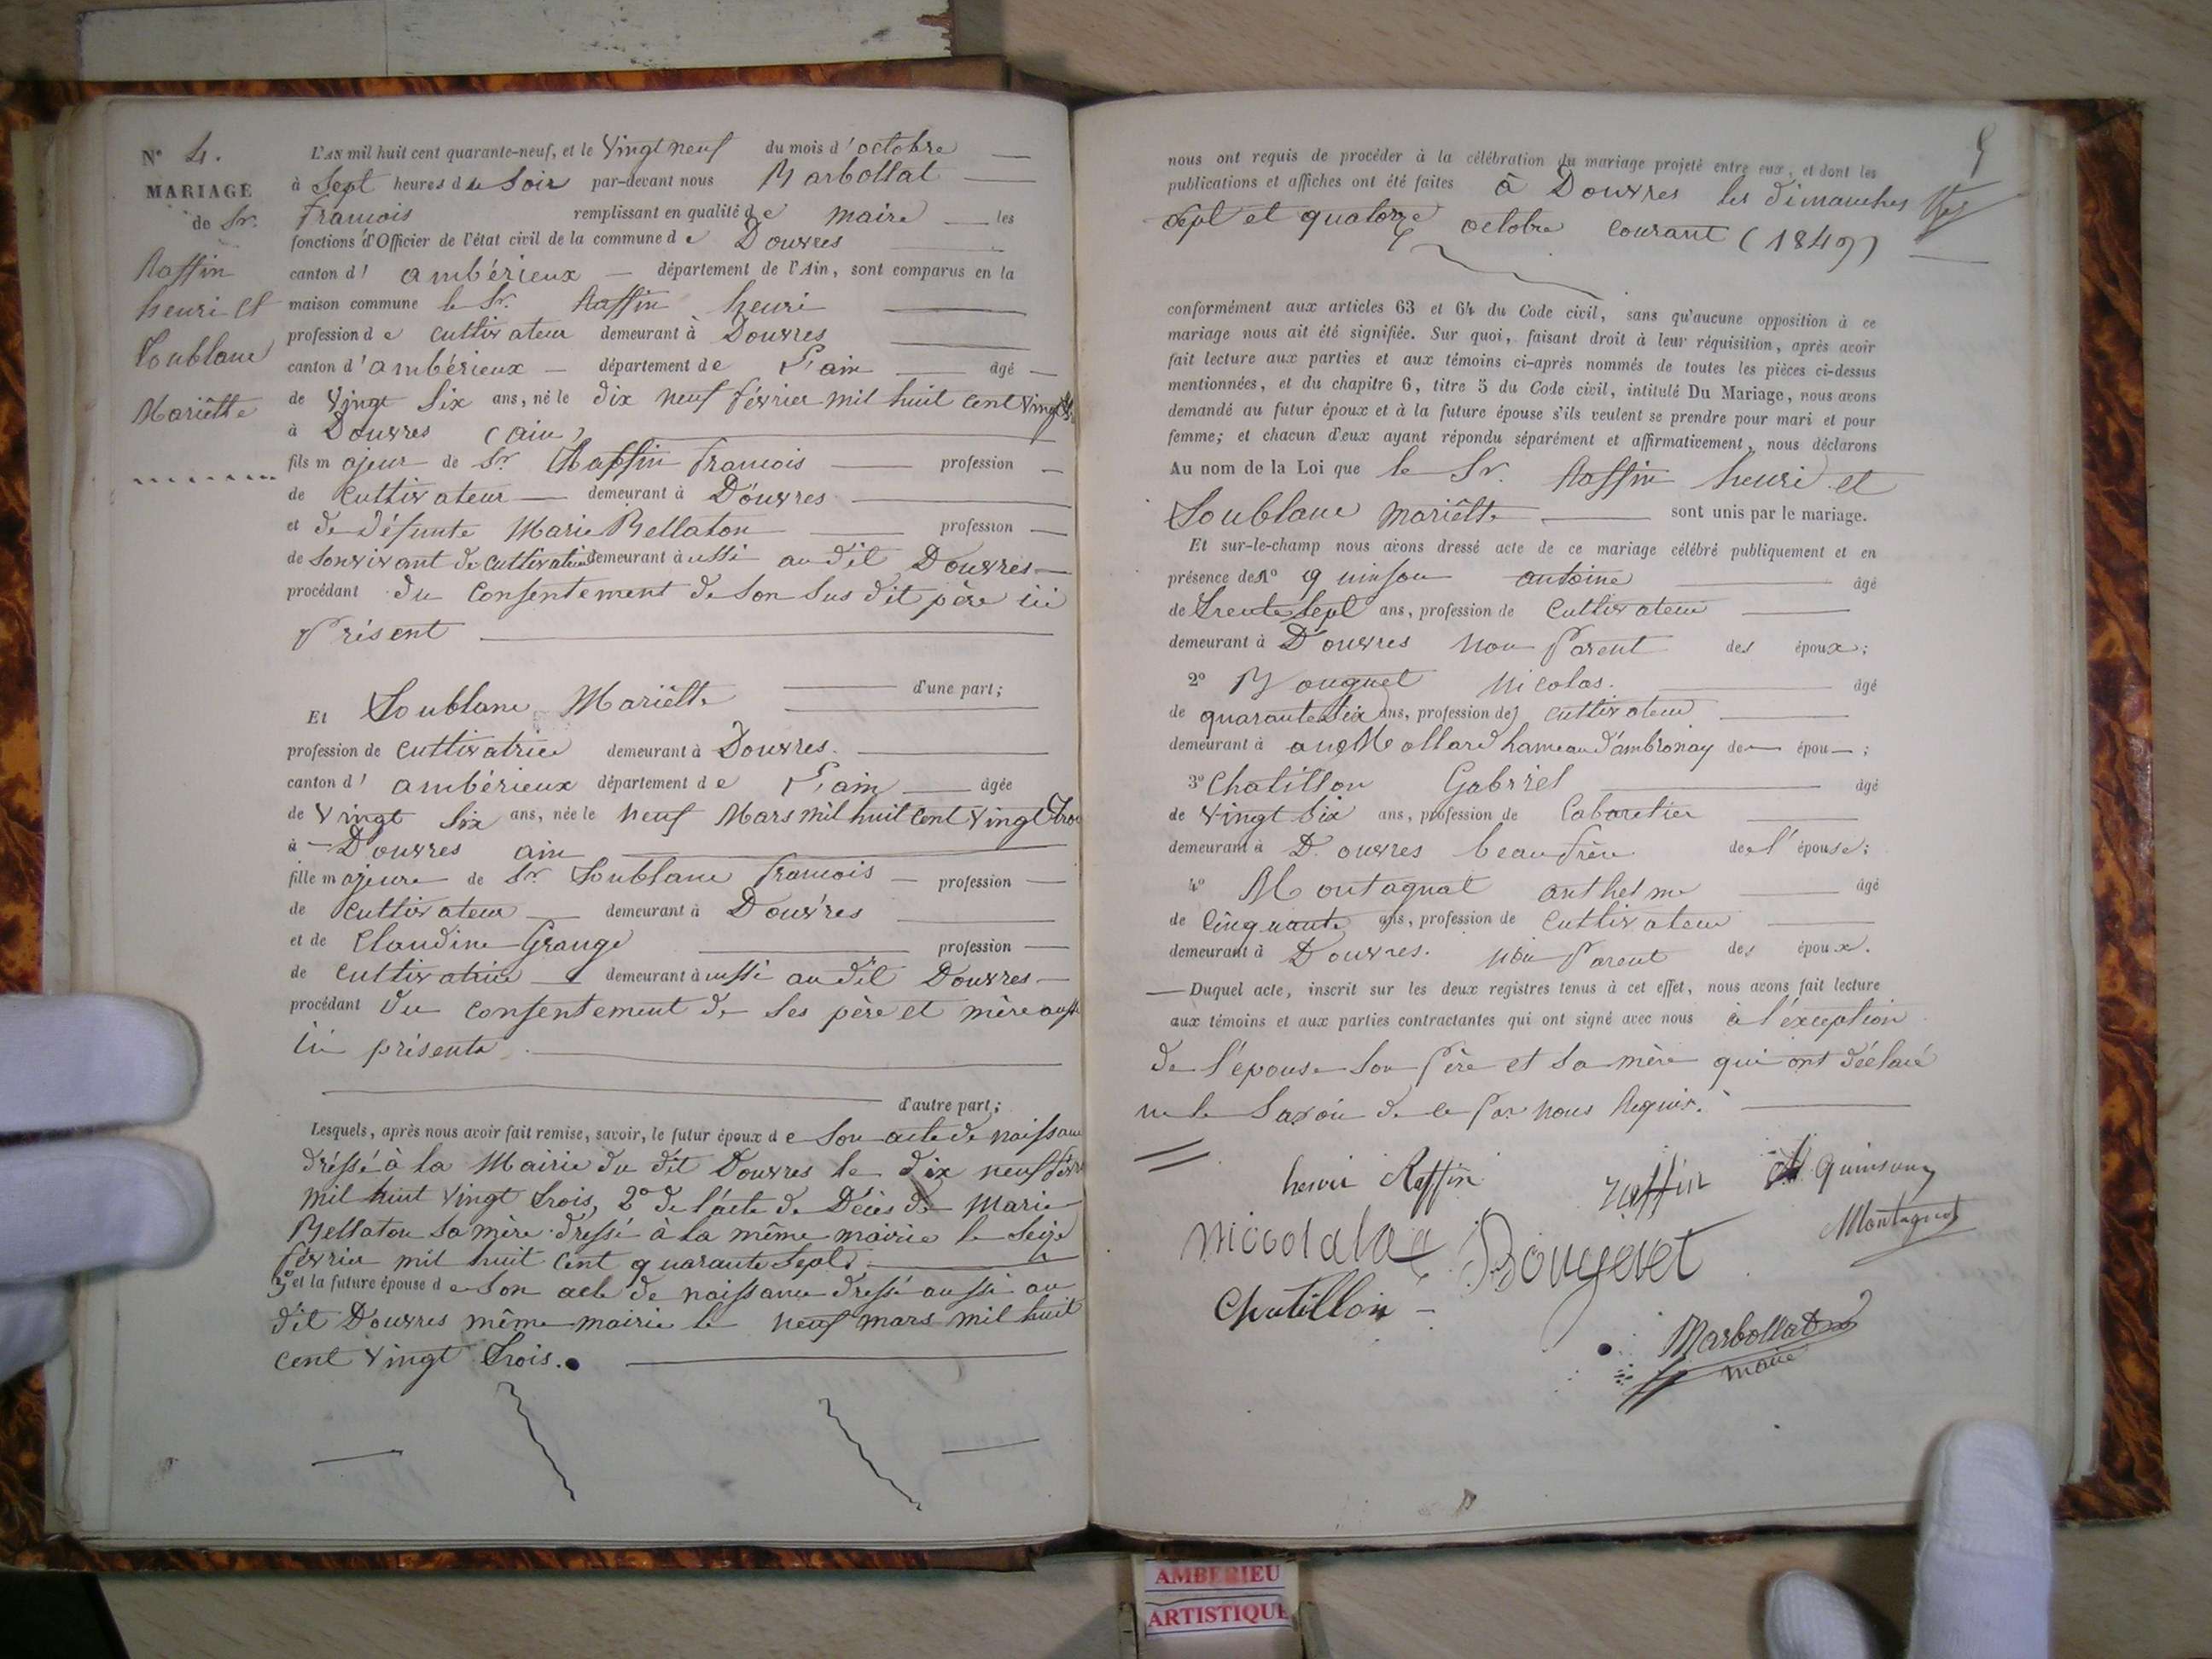 N° 4.
MARIAGE
de Sr.
Raffin
henri et
Soublane
Mariètte
L'AN mil huit cent quarante-neuf, et le Vingt neuf du mois d'octobre
à Sept heures du Soir par-devant nous Marbollat
francois remplissant en qualité de maire les
fonctions d'Officier de l'état civil de la commune de Douvres
canton d' ambérieux département de l'Ain, sont comparus en la
maison commune le Sr. Raffin henri
profession de cultivateur demeurant à Douvres
canton d'ambérieux département de l'ain âgé
de Vingt Six ans, né le dix neuf février mil huit cent vingt
à Douvres (ain)
fils majeur de Sr. Raffin francois profession
de cultivateur demeurant à Douvres
et de défunte Marie Bellaton profession
de son vivant de cultivateur demeurant aussi au dit Douvres
procédant du consentement de son sus dit père ici
présent
d'une part;
Et Soublane Mariètte
profession de cultivatrice demeurant à Douvres.
canton d' ambérieux département de l'ain âgée
de Vingt Six ans, née le neuf Mars mil huit cent vingt trois
à Douvres ain
fille majeure de Sr Soublane francois profession
de cultivateur demeurant à Douvres
et de Claudine Grange profession
de cultivatrice demeurant aussi au dit Douvres
procédant du consentement de ses père et mère aussi
ici présents
d'autre part;
Lesquels, après nous avoir fait remise, savoir, le futur époux de son acte de naissance
dréssé à la Mairie du dit Douvres le dix neuf
mil huit vingt trois, 2° de l'acte de Décès de Marie
Bellaton sa mère dressé à la même mairie le seize
février mil huit cent quarante sept.
3° et la future épouse de son acte de naissance dressé aussi au
dit Douvres même mairie le neuf mars mil huit
cent vingt trois.
5
nous ont requis de procéder à la célébration du mariage projeté entre eux, et dont les
publications et affiches ont été faites à Douvres les dimanches
sept et quatorze octobre courant (1849)
conformément aux articles 63 et 64 du Code civil, sans qu'aucune opposition à ce
mariage nous ait été signifiée. Sur quoi, faisant droit à leur réquisition, après avoir
fait lecture aux parties et aux témoins ci-après nommés de toutes les pièces ci-dessus
mentionnées, et du chapitre 6, titre 5 du Code civil, intitulé Du Mariage, nous avons
demandé au futur époux et à la future épouse s'ils veulent se prendre pour mari et pour
femme; et chacun d'eux ayant répondu séparément et affirmativement, nous déclarons
Au nom de la Loi que le Sr. Raffin henri et
Soublane mariètte sont unis par le mariage.
Et sur-le-champ nous avons dressé acte de ce mariage célébré publiquement et en
présence de 1° quinson antoine âgé
de trente sept ans, profession de cultivateur
demeurant à Douvres non parent des époux;
2° Bouguet nicolas. âgé
de quarante six ans, profession de cultivateur
demeurant à au Mollard hameau d'ambronay de épou ;
3° Chatillon Gabriel âgé
de Vingt Six ans, profession de Cabaretier
demeurant à Douvres beau frère de l'épouse;
4° Montagnat anthelme âgé
de Cinquante ans, profession de cultivateur
demeurant à Douvres. non parent des époux.
Duquel acte, inscrit sur les deux registres tenus à cet effet, nous avons fait lecture
aux témoins et aux parties contractantes qui ont signé avec nous à l'éxception
de l'épouse son père et sa mère qui ont déclaré
ne le savoir de ce par nous requis.
henri Raffin raffin A quinson
Montagnat
Chatillon
Marbollat
maire
AMBERIEU
ARTISTIQUE